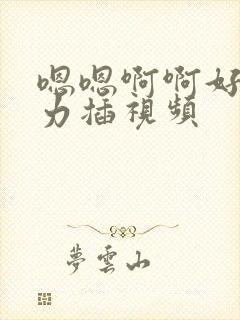 嗯嗯啊啊好
力插視頻
夢雲山